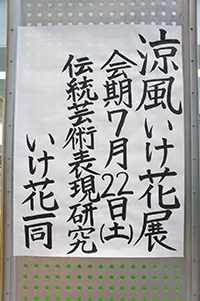 涼風いけ花展
会期7月22日(土)
伝統芸術表現研究
いけ花一同